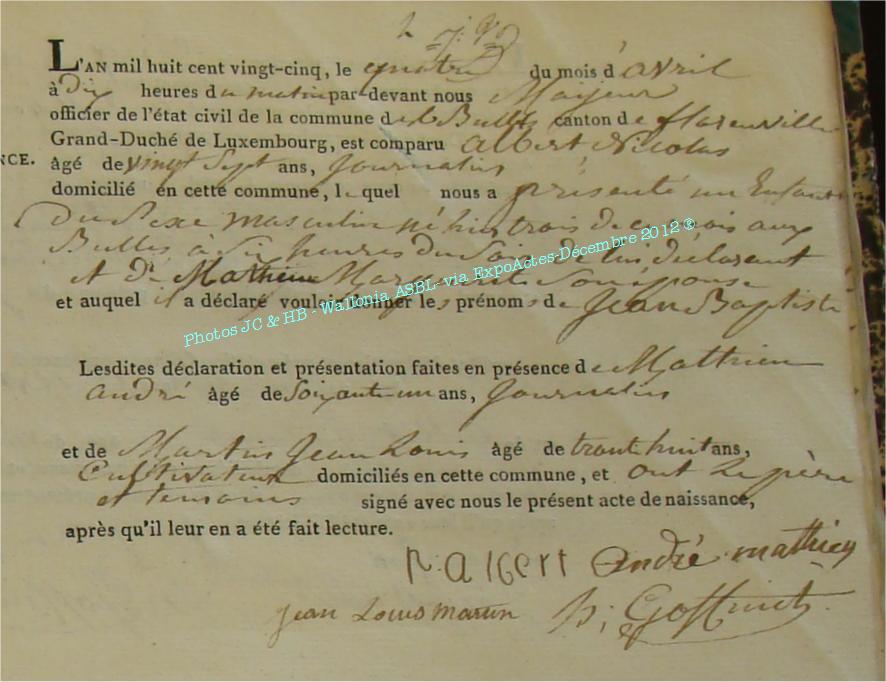 L'AN mil huit cent vingt-cinq, le quatre du mois d'avril
à dix heures du matin par-devant nous Majeur
officier de l'état civil de la commune de les Bulles canton de florenville
Grand-Duché de Luxembourg, est comparu Albert Nicolas
NCE.
âgé de vingt Sept ans, Journalier
domicilié en cette commune, lequel nous a présenté un Enfant
Du Sexe masculin né hier trois de ce mois aux
Bulles à Six heures du Soir de lui déclarant
et De Mathieu Marguerite Son épouse
et auquel il a déclaré vouloir donner les prénoms de Jean Baptiste
Photos JC & HB - Wallonia ASBL - via ExpoActes-Décembre 2012 ®
Lesdites déclaration et présentation faites en présence de Mathieu
andré âgé de Soixante un ans, Journalier
et de Martin Jean Louis âgé de trente huit ans,
Cultivateur domiciliés en cette commune, et ont Le père
et temoins signé avec nous le présent acte de naissance,
après qu'il leur en a été fait lecture.
N: albert andré mathieu
jean Louis martin h; Goffinet